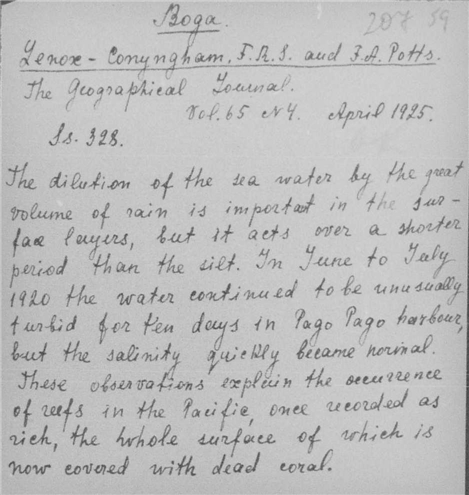 Boga.
207 59
Lenox - Conyngham, F.R.S. and F.A. Potts.
The Geographical Journal.
Vol. 65 N4. April 1925.
Ss. 328.
The dilution of the sea water by the great
volume of rain is important in the sur-
face layers, but it acts over a shorter
period than the silt. In June to July
1920 the water continued to be unusually
turbid for ten days in Pago Pago harbour,
but the salinity quickly became normal.
These observations explain the occurrence
of reefs in the Pacific, once recorded as
rich, the whole surface of which is
now covered with dead coral.